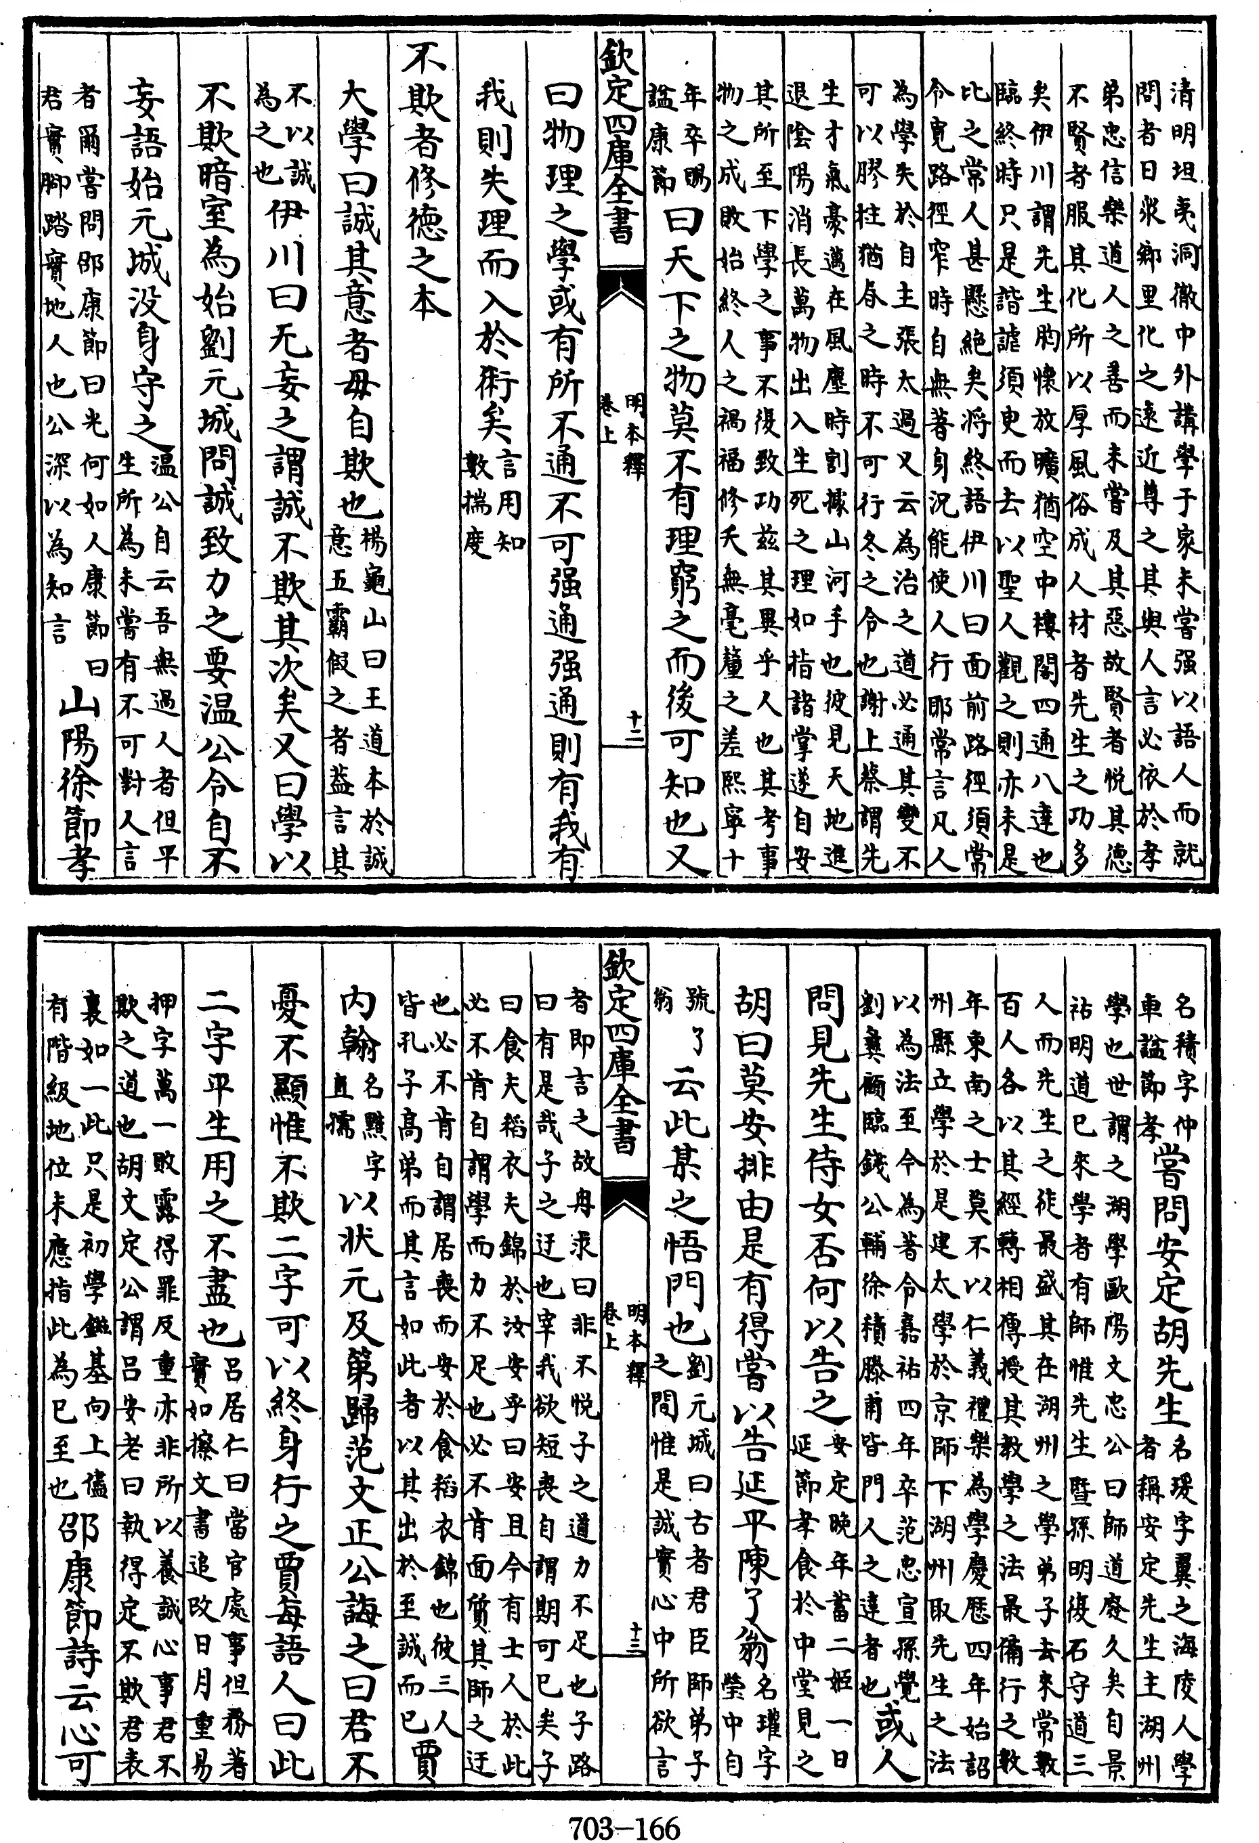 清明坦夷洞徹中外講學于家未嘗强以語人而就
問者日衆鄉里化之逺近尊之其與人言必依於孝
弟忠信樂道人之善而未嘗及其惡故賢者悅其德
不賢者服其化所以厚風俗成人材者先生之功多
矣伊川謂先生胷懷放曠猶空中樓閣四通八達也
臨終時只是諧謔須臾而去以聖人觀之則亦未是
比之常人甚懸絶矣將終語伊川曰面前路徑須常
令寛路徑窄時自無著身況能使人行耶常言凡人
為學失於自主張太過又云為治之道必通其變不
可以膠柱猶春之時不可行冬之令也謝上蔡謂先
生才氣豪邁在風塵時割據山河手也彼見天地進
退陰陽消長萬物出入生死之理如指諸掌遂自安
其所至下學之事不復致功兹其異乎人也其考事
物之成敗始終人之禍福修夭無毫釐之差熈寧十
年卒賜諡康節曰天下之物莫不有理窮之而後可知也又
欽定四庫全書 明本釋卷上 十二
曰物理之學或有所不通不可强通强通則有我有
我則失理而入於術矣言用知數揣度
不欺者修德之本
大學曰誠其意者毋自欺也楊龜山曰王道本於誠意五霸假之者葢言其
不以誠為之也伊川曰无妄之謂誠不欺其次矣又曰學以
不欺暗室為始劉元城問誠致力之要温公令自不
妄語始元城没身守之温公自云吾無過人者但平生所為未嘗有不可對人言
者爾嘗問邵康節曰光何如人康節曰君實脚踏實地人也公深以為知言山陽徐節孝
名積字仲車諡節孝嘗問安定胡先生名瑗字翼之海陵人學者稱安定先生主湖州
學也世謂之湖學歐陽文忠公曰師道廢久矣自景
祐明道已來學者有師惟先生暨孫明復石守道三
人而先生之徒最盛其在湖州之學弟子去來常數
百人各以其經轉相傳授其教學之法最備行之數
年東南之士莫不以仁義禮樂為學慶厯四年始詔
州縣立學於是建太學於京師下湖州取先生之法
以為法至今為著令嘉祐四年卒范忠宣孫覺劉彝顧臨錢公輔徐積滕甫皆門人之達者也或人
問見先生侍女否何以告之安定晚年畜二姬一日延節孝食於中堂見之
胡曰莫安排由是有得嘗以告延平陳了翁名瓘字瑩中自
號了翁云此某之悟門也劉元城曰古者君臣師弟子之間惟是誠實心中所欲言
欽定四庫全書 明本釋卷上 十三
者即言之故冉求曰非不悅子之道力不足也子路
曰有是哉子之迂也宰我欲短喪自謂期可已矣子
曰食夫稻衣夫錦於汝安乎曰安且今有士人於此
必不肯自謂學而力不足也必不肯面質其師之迂
也必不肯自謂居喪而安於食稻衣錦也彼三人皆孔子高弟而其言如此者以其出於至誠而已賈
内翰名黯字直孺以狀元及第歸范文正公誨之曰君不
憂不顯惟不欺二字可以終身行之賈每語人曰此
二字平生用之不盡也吕居仁曰當官處事但務著實如擦文書追改日月重易
押字萬一敗露得罪反重亦非所以養誠心事君不
欺之道也胡文定公謂吕安老曰執得定不欺君表
裏如一此只是初學鎡基向上儘有階級地位未應指此為已至也邵康節詩云心可
703-166